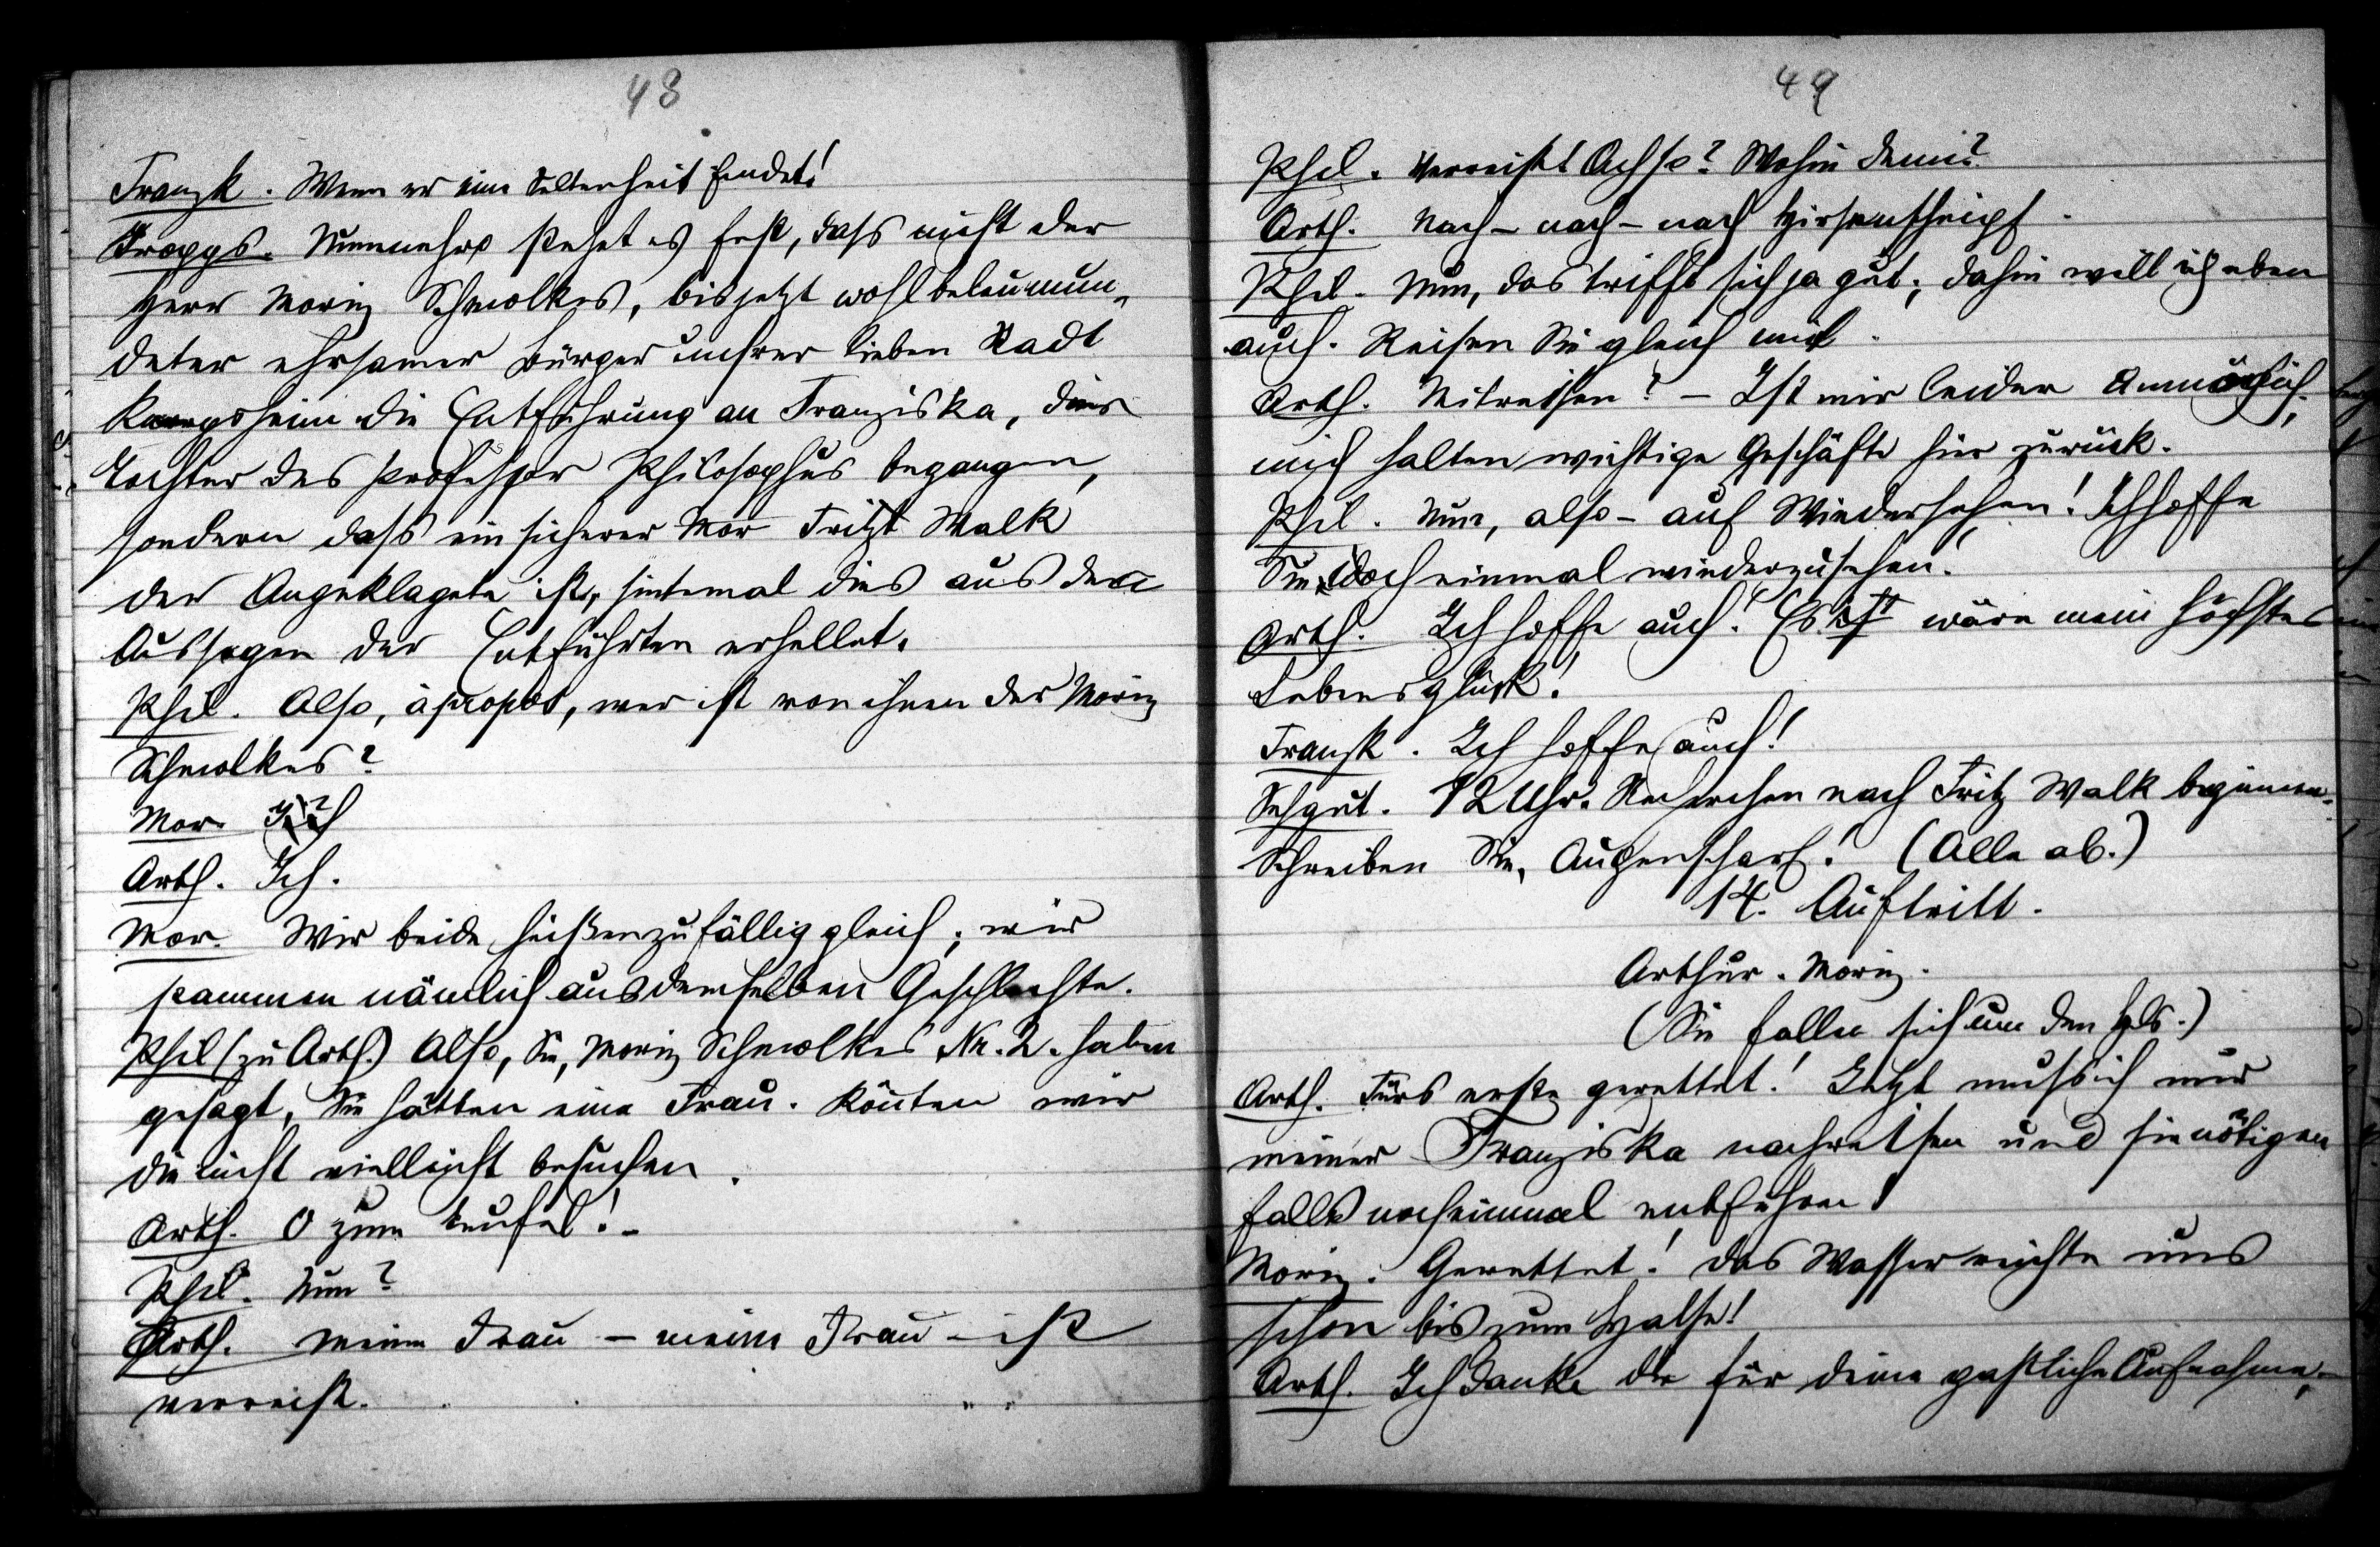 48
Franzk. Wenn er eine Seltenheit findet!
Knopps. Nunmehro stehet es fest, dass nicht der
Herr Moriz Schmolkes, bis jetzt wohlbeleumun-
deter ehrsamer Bürger unsrer lieben Stadt
die Entführung an Franziska, der
Tochter des Professor Philosophus begangen,
sondern dass ein sicherer Mor Fritzt Walk
der Angeklagete ist, sintemal dies aus den
Aussagen der Entführten erhellet.
Phil. Also, àpropos, wer ist von ihnen der Moriz
Schmolkes?
Mor. Ich
Arth. Ich.
Mor. Wir beide heißen zufällig gleich; wir
stammen nämlich aus demselben Geschlechte.
Phil (zu Arth.) Also, Sie, Moriz Schmolkes Nr. 2. haben
gesagt, Sie hätten eine Frau. Könnten wir
die nicht vielleicht besuchen.
Arth. O zum Teufel! -
Phil. Nun?
Arth. Meine Frau - meine Frau - ist
verreist.
49
Phil. Verreist Achso? Wohin denn?
Arth. Nach - nach - nach
Phil. Nun, das trifft sich ja gut; dahin will ich eben
auch. Reisen Sie gleich mit.
Arth. Mitreisen? - Ist mir leider Unmöglich;
mich halten wichtige Geschäfte hier zurück.
Phil. Nun, also - auf Wiedersehen! Ich hoffe
Sie doch einmal wiederzusehen.
Arth. Ich hoffe auch! Es ist wäre mein höchstes
Lebensglück!
Franzk. Ich hoffe auch!
Sehgut. 12 Uhr. Recherchen nach Fritz Walk beginnen.
Schreiben Sie, Augenscharf! (Alle ab.)
14. Auftritt.
Arthur. Moriz.
(Sie fallen sich um den Hals.)
Arth. Fürs erste gerettet! Jetzt muss ich nur
meiner Franziska nachreisen und sie nötigen
falls nocheinmal entführen!
Moriz. Gerettet! Das Wasser reichte uns
schon bis zum Halse!
Arth. Ich danke dir für deine gastliche Aufnahme,